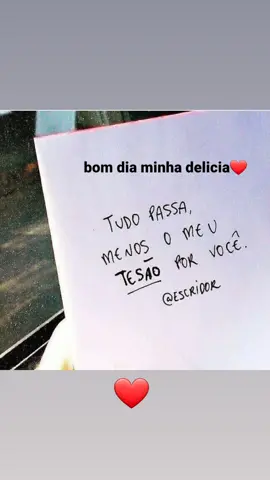 bom dia minha delicia❤️
TUDO PASSA,
MENOS O MEU
TESÃO POR VOCÊ.
@ESCRIDOR